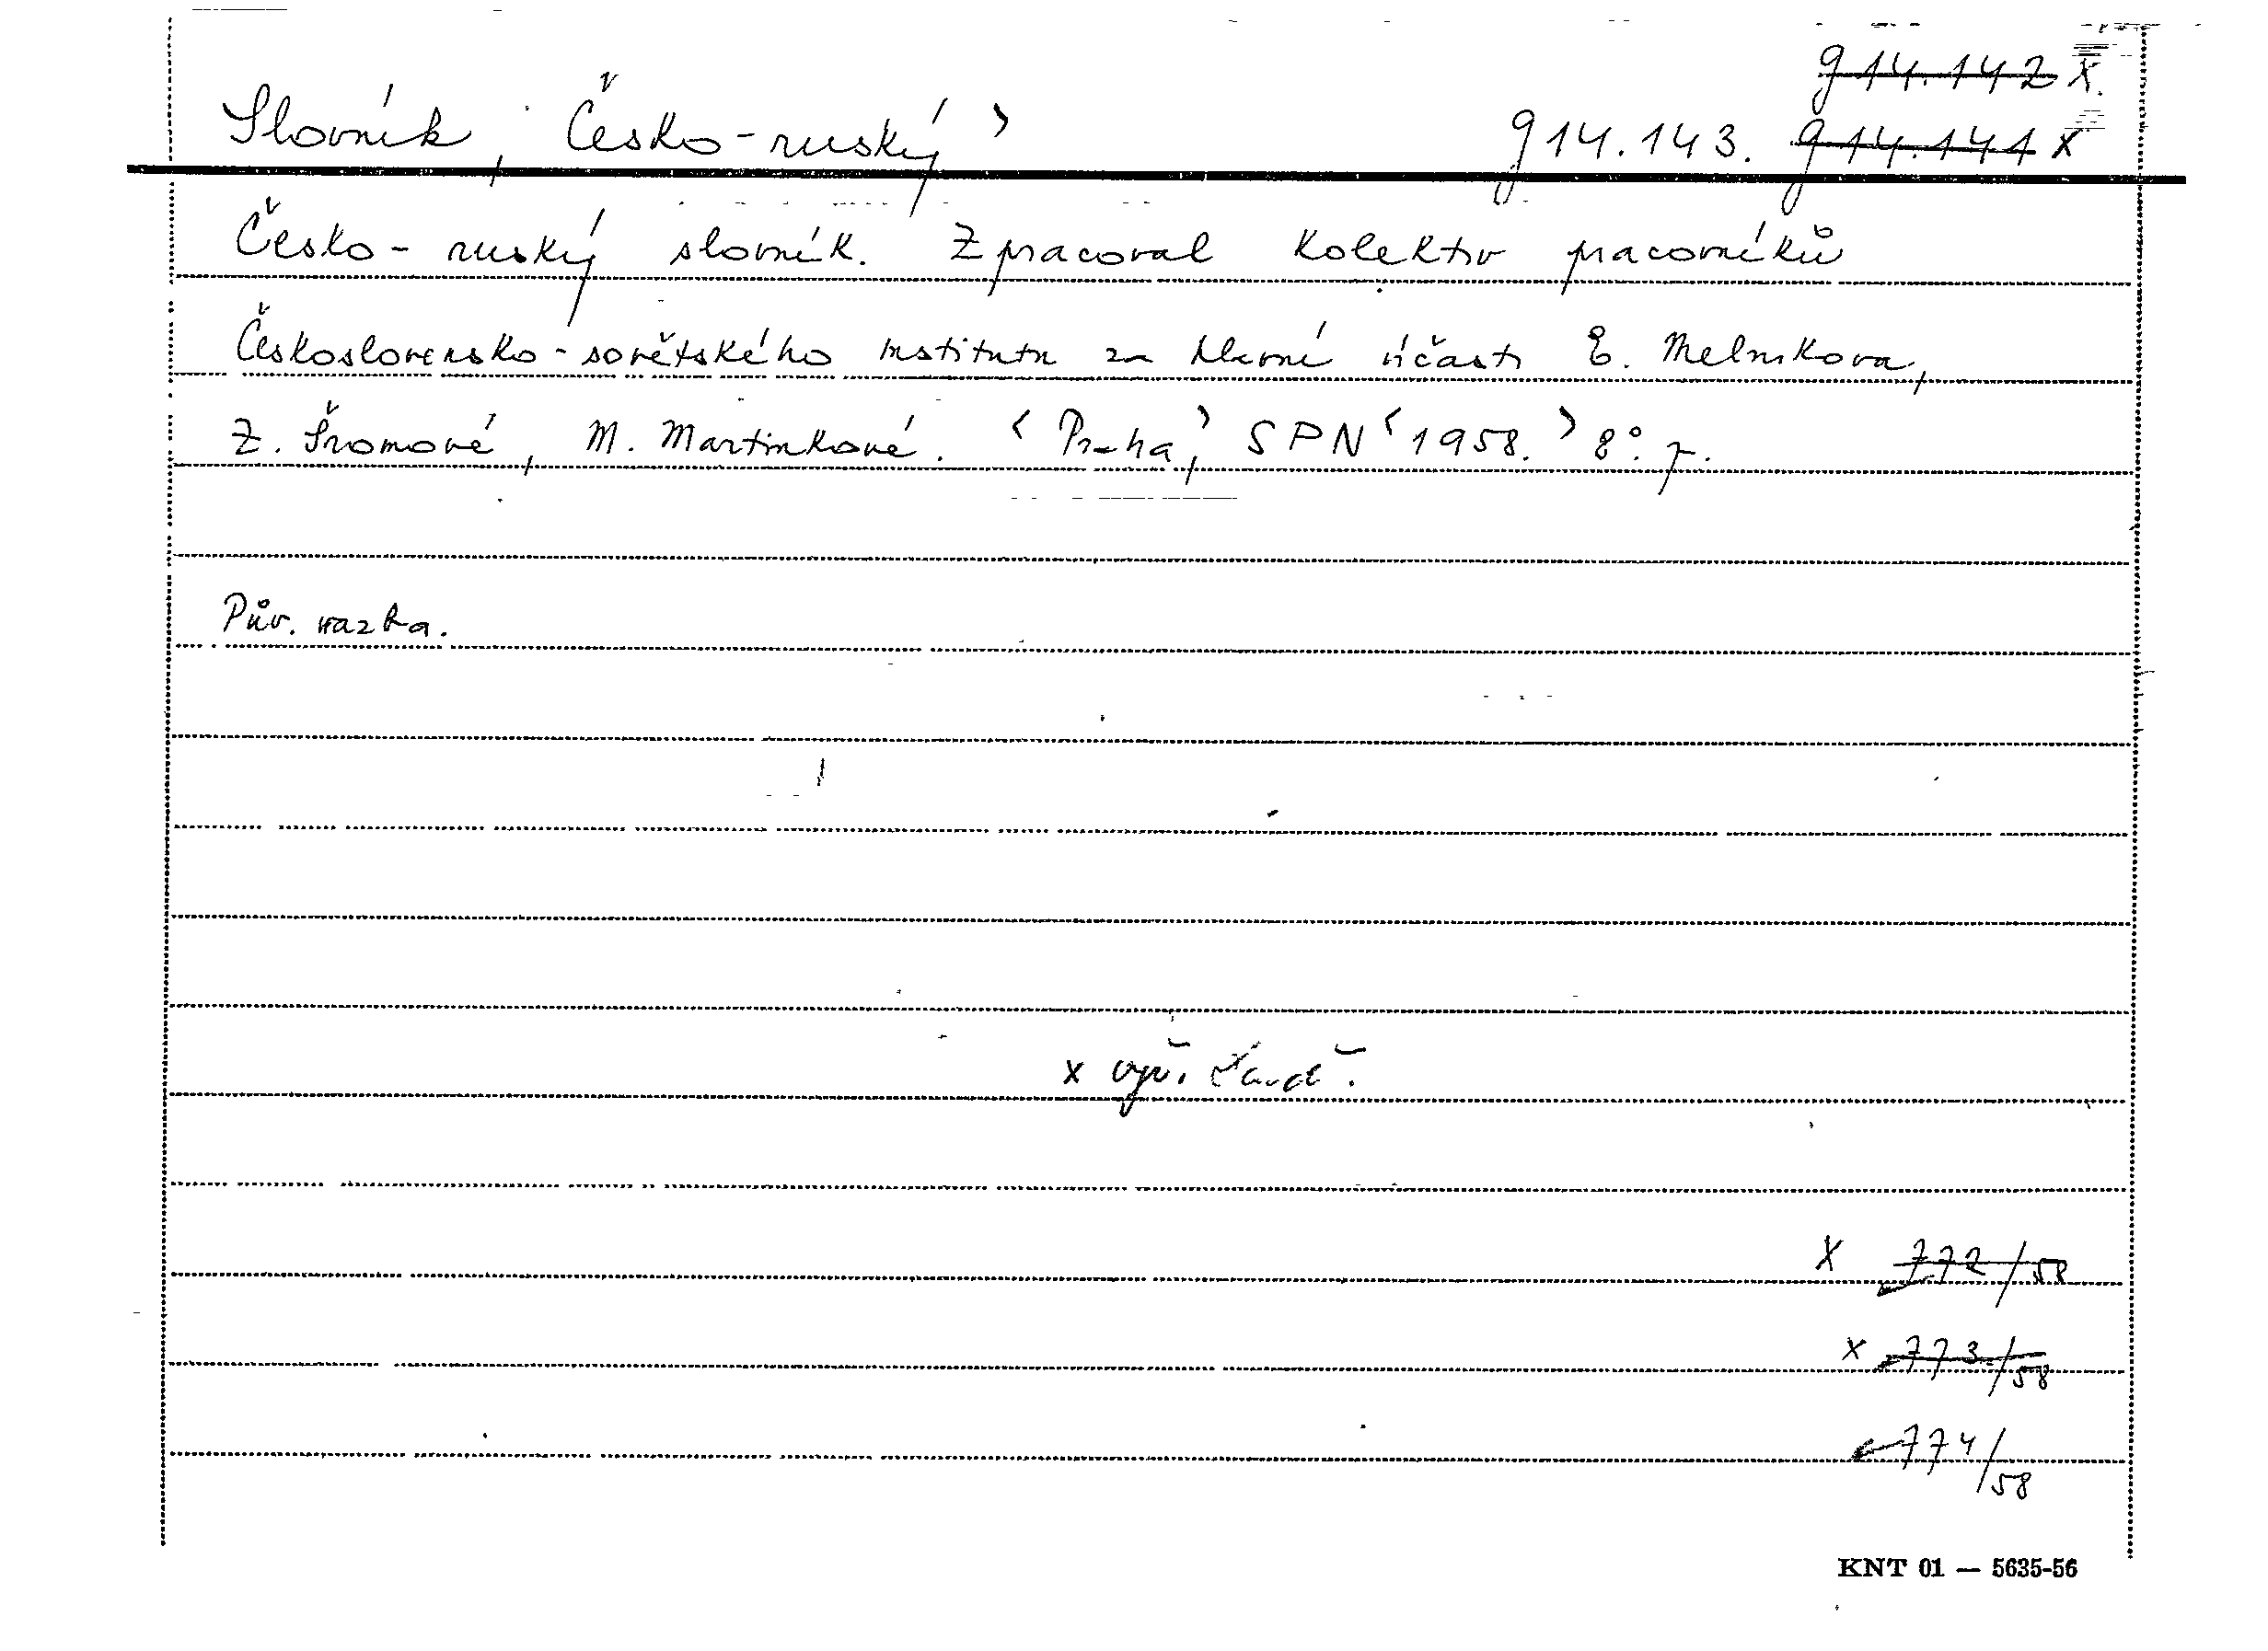 g 14.142 X.
Slovník, Česko-ruský > g 14.143. g 14.141 X
Česko-ruský slovník. Zpracoval kolektiv pracovníků
Československo-sovětského institutu za hlavní účasti E. Melnikova,
Z. Šromové, M. Martinkové. < Praha,> SPN < 1958. > 8°. 7.
Pův. vazba.
x vyř.
X 772/58
x 773/58
774/58
KNT 01 — 5635-56